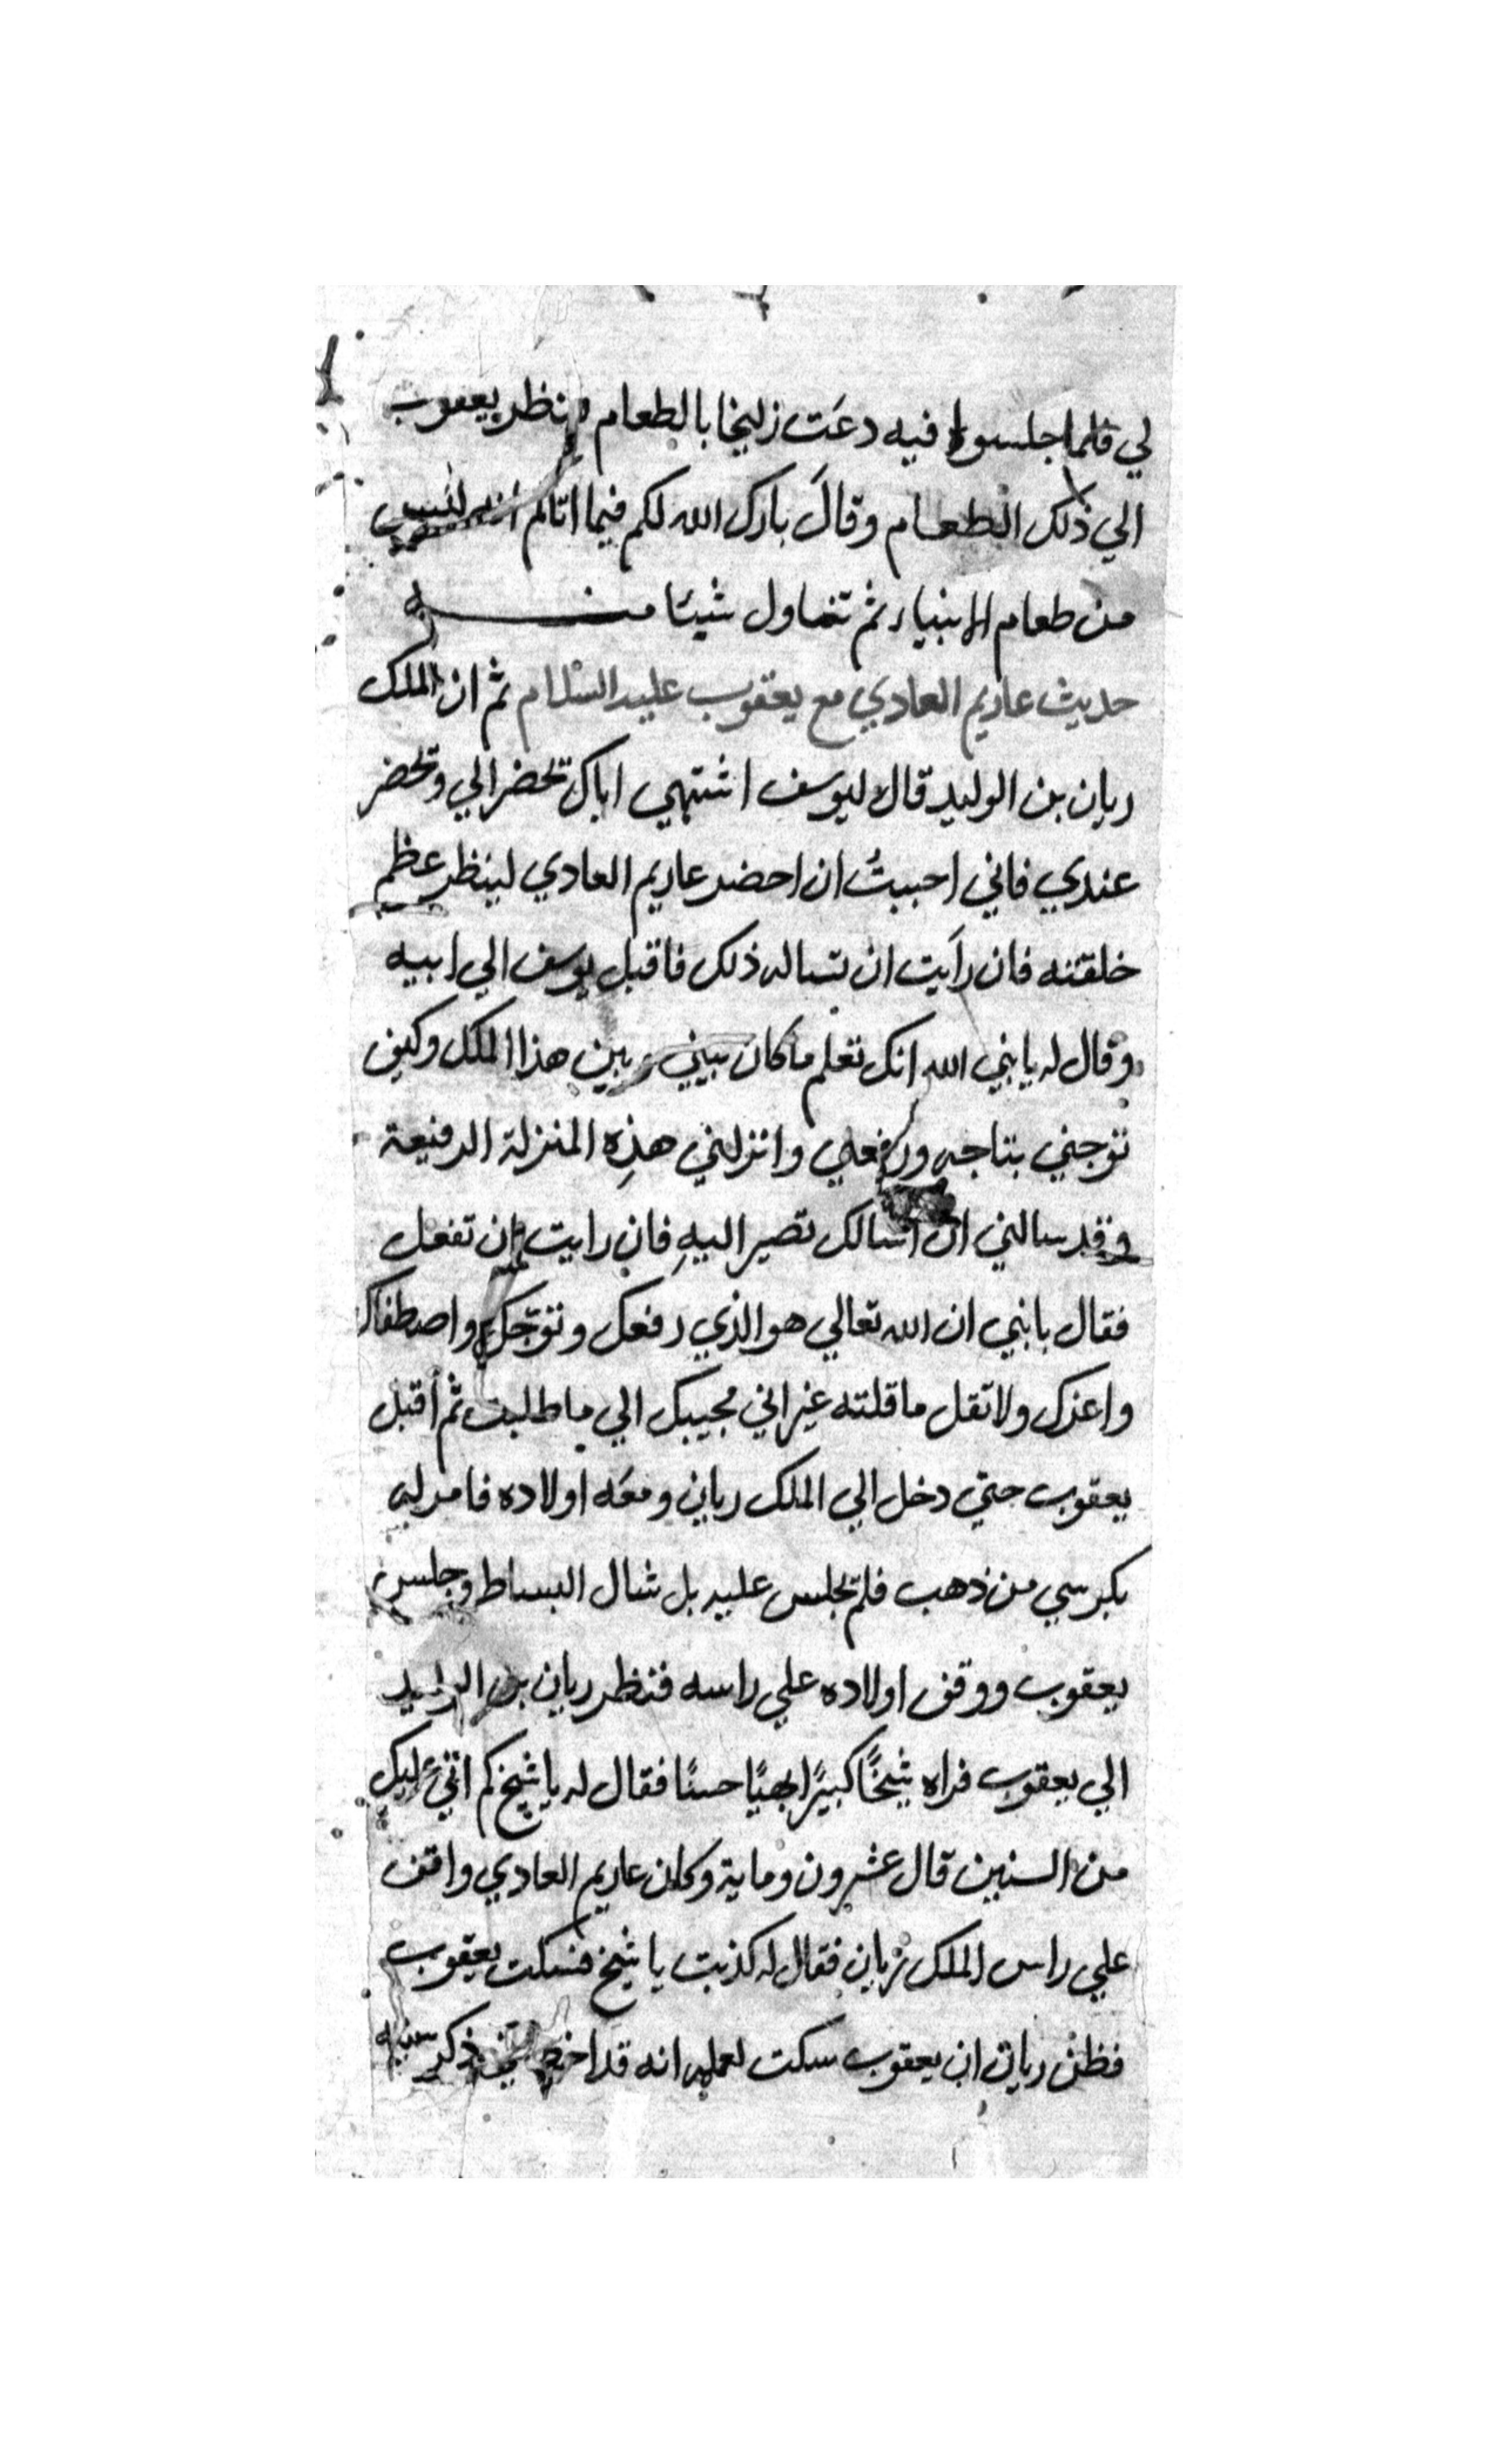 لي فلما جلسوا فيه دعَت زليخا بالطعام ونظر يعقوب
الي ذلك الطعام وقالَ بارك الله لكم فيما اتاكم انه ليس
من طعام الانبياء ثم تناول شيئا منه
حديث عاديم العادي مع يعقوب عليه السلام ثم ان الملك
ريان بن الوليد قال ليوسف اشتهي اباك تحضر الي وتحضر
عندي فاني احببتُ ان احضر عاديم العادي لينظر عظم
خلقتنه فان رايَت ان تساله ذلك فاقبل يوسف الي ابيه
وقال له يا نبي الله انك تعلم ما كان بيني وبين هذا الملك وكيف
توجني بتاجه ورفعني وانزلني هذِه المنزلة الرفيعة
وقد سالني ان اسالك تصير اليهِ فان رايت ان تفعل
فقال يا بني ان الله تعالي هو الذي رفعك وتوّجك واصطفاك
واعزك ولا تقل ما قلته غير اني مجيبك الي ما طلبت ثم أقبل
يعقوب حتي دخل الي الملك ريان ومعَه اولاده فامر له
بكرسي من ذهب فلم يجلس عليه بل شال البساط وجلس
يعقوب ووقف اولاده علي راسه فنظر ريان بن الوليد
الي يعقوب فراه شيخًا كبيرًا بهيًا حسنًا فقال له يا شيخ كم اتيَ عليك
من السنين قال عشرون وماية وكان عاديم العادي واقف
علي راس الملك ريان فقال له كذبت يا شيخ فسكت يعقوب
فظن ريان ان يعقوب سكت لعلمه انه قد ذكر سنيه